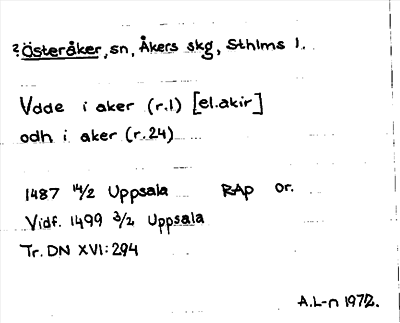 ? Österåker, sn, Åkers skg, Sthlms l.
Vdde i aker (r.1) [el. akir]
odh i aker (r.24)
1487 14/2 Uppsala RAp or.
Vidf. 1499 3/2 Uppsala
Tr. DN XVI:294
A.L-n 1972.